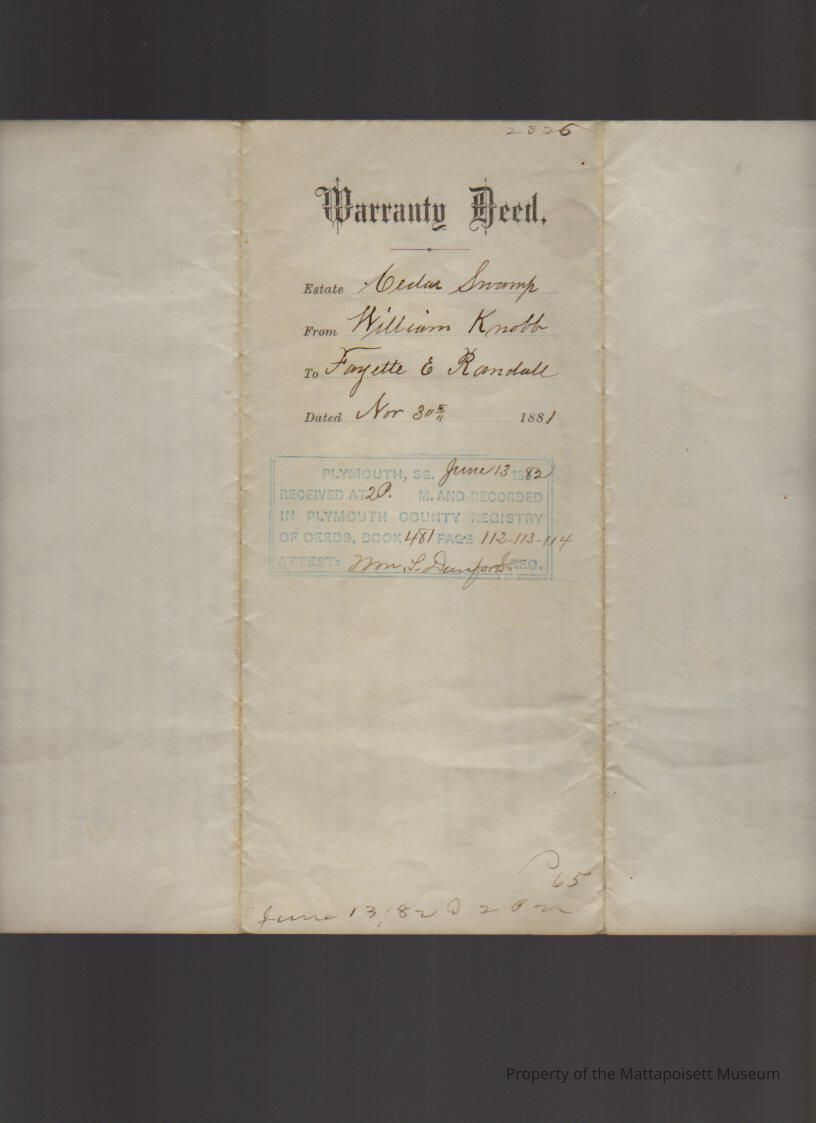 2326
Warranty Deed.
Estate Cedar Swamp
From William Knobb
To Fayette E Randall
Dated Nov 30th 1881
PLYMOUTH, SS. June 13 1882
RECEIVED AT 2 P. M. AND RECORDED
IN PLYMOUTH COUNTY REGISTRY
OF DEEDS, BOOK 481 PAGE 112-113-114
ATTEST: Wm S. Danforth REG.
65
June 13, 82 2 P m
Property of the Mattapoisett Museum